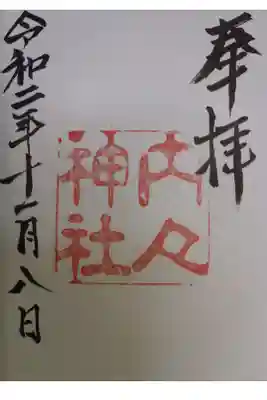 奉拝
内々
神社
令和二年十一月八日